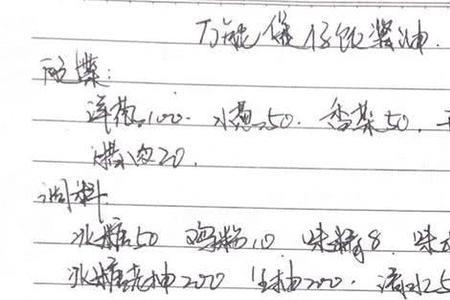 万能煲仔饭酱油.
配菜:
洋葱100. 小葱50. 香菜50.
腊肉20.
调料
冰糖50 鸡粉10 味精8. 味
冰糖老抽200 生抽200. 清水25